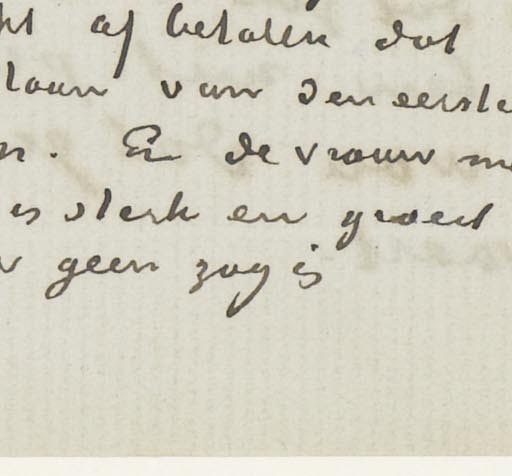 af betalen dat
loon van den eerste
n. En de vrouw
is sterk en groeit
geen zog is